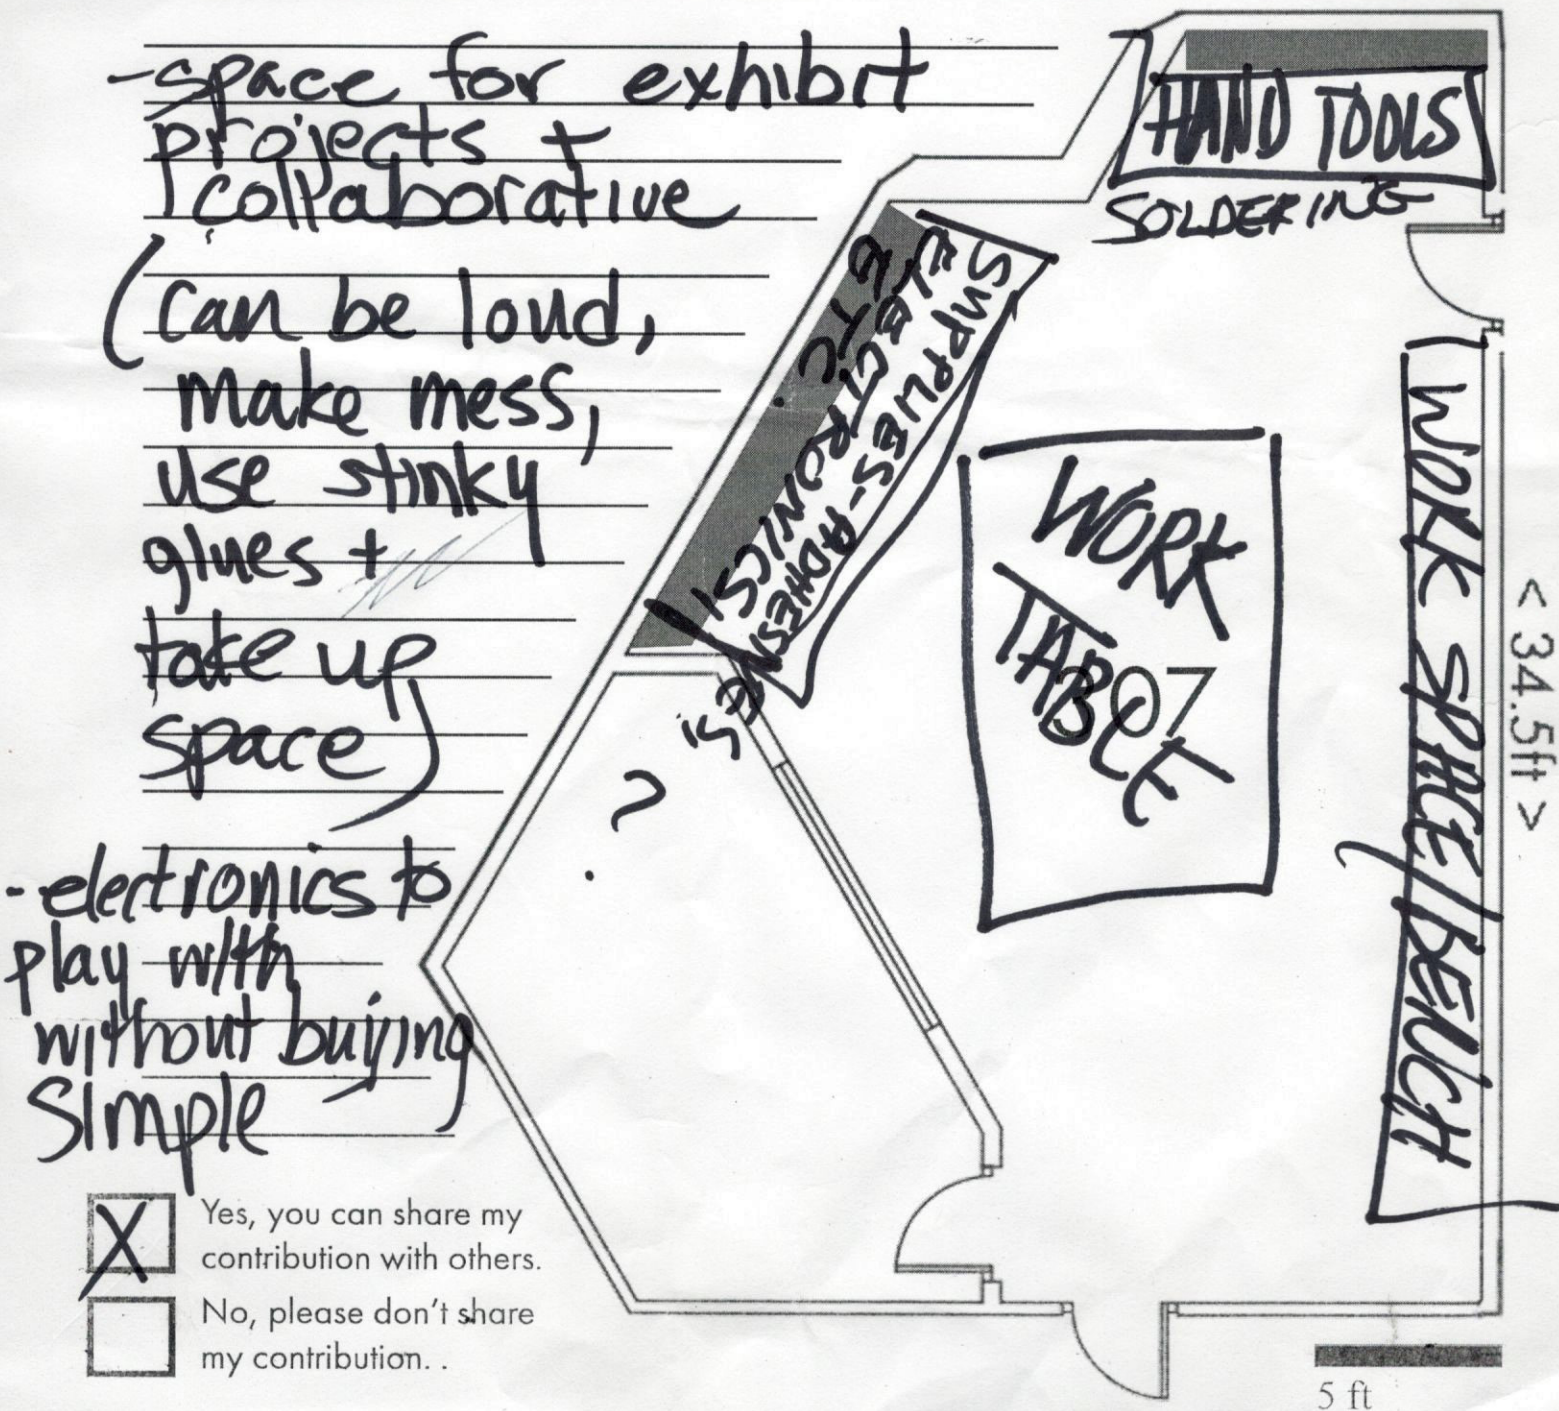 -space for exhibit
projects +
collaborative
(can be loud,
make mess,
use stinky
glues +
take up
space)
-electronics to
play with
without buying
simple
X Yes, you can share my
contribution with others.
No, please don't share
my contribution. .
HAND TOOLS
SOLDERING
SUPPLIES-ADHESIVES,
ELECTRONICS,
ETC.
?
WORK
TABLE
307
WORK SPACE/BENCH
< 34.5ft >
5 ft